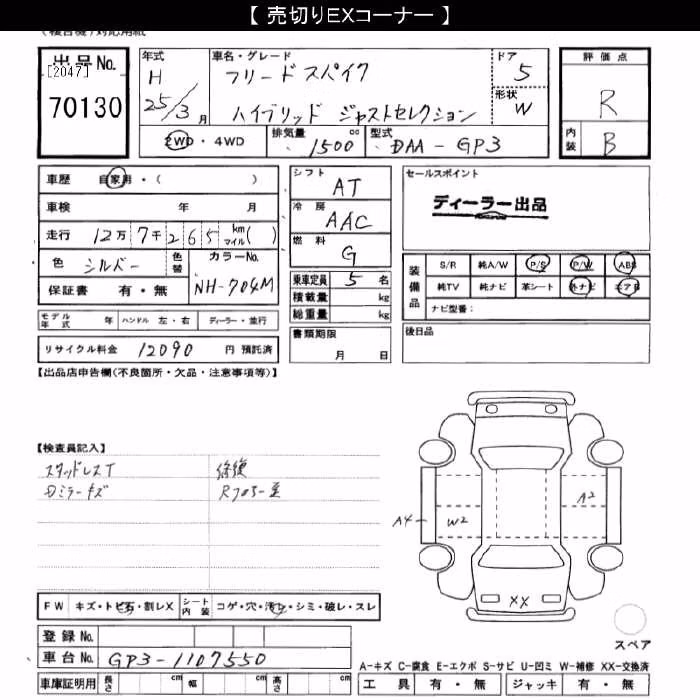 【 売切りEXコーナー 】
出品No.
[2047]
70130
年式
H
25/3月
車名・グレード
フリードスパイク
ハイブリッド ジャストセレクション
ドア
5
形状
W
2WD・4WD
排気量 1500 cc
型式 DAA-GP3
評価点
R
内装 B
車歴 自家用・( )
車検 年 月
走行 12万7千265 km マイル( )
色 シルバー 色替 カラーNo. NH-704M
保証書 有・無
シフト AT
冷房 AAC
燃料 G
乗車定員 5 名
積載量 kg
総重量 kg
書類期限
月 日
セールスポイント
ディーラー出品
装備品
S/R 純A/W P/S P/W ABS
純TV 純ナビ 革シート 外ナビ エアB
ナビ型番:
後日品
モデル年式 年 ハンドル 左・右 ディーラー・並行
リサイクル料金 12090 円 預託済
【出品店申告欄(不良箇所・欠品・注意事項等)】
【検査員記入】
スタッドレスT 修復
Dミラーキズ
A4
W2
A2
XX
スペア
FW キズ・トビ石・割レX シート内装 コゲ・穴・汚レ・シミ・破レ・スレ
登録No.
車台No. GP3-1107550
車庫証明用 長さ cm 幅 cm 高さ cm
A-キズ C-腐食 E-エクボ S-サビ U-凹ミ W-補修 XX-交換済
工具 有・無 ジャッキ 有・無